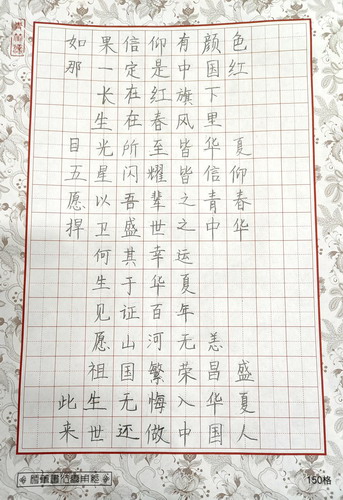 如果信仰有颜色
那一定是中国红
长在红旗下
生在春风里
目光所至皆华夏
五星闪耀皆信仰
愿以吾辈之青春
捍卫盛世之中华
何其幸运
生于华夏
见证百年
愿山河无恙
祖国繁荣昌盛
此生无悔入华夏
来世还做中国人
150格